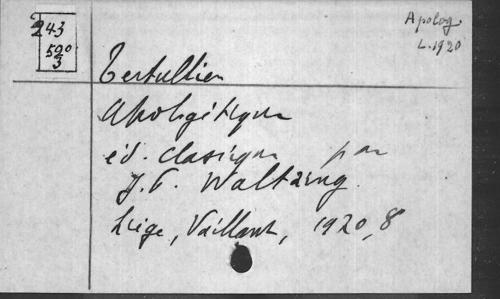 243
590
3
Apolog
L. 1920
Tertullien
Apologétique
éd. clasique par
J. P. Waltzing.
Liége, Vaillant, 1920, 8°